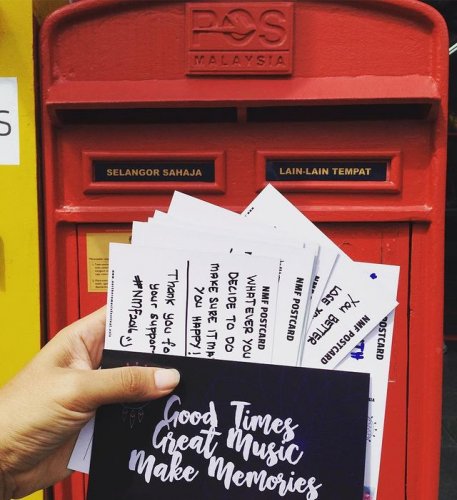 POS
MALAYSIA
S
SELANGOR SAHAJA
LAIN-LAIN TEMPAT
#NMF2014
Thank you fo
your suppor
WHATEVER YOU
DECIDE TO DO
MAKE SURE IT MA
YOU HAPPY!
NMF POSTCARD
NMF POSTCARD
YOU BETTER
LOSE YO
NMF POSTCARD
Good Times
Great Music
Make Memories